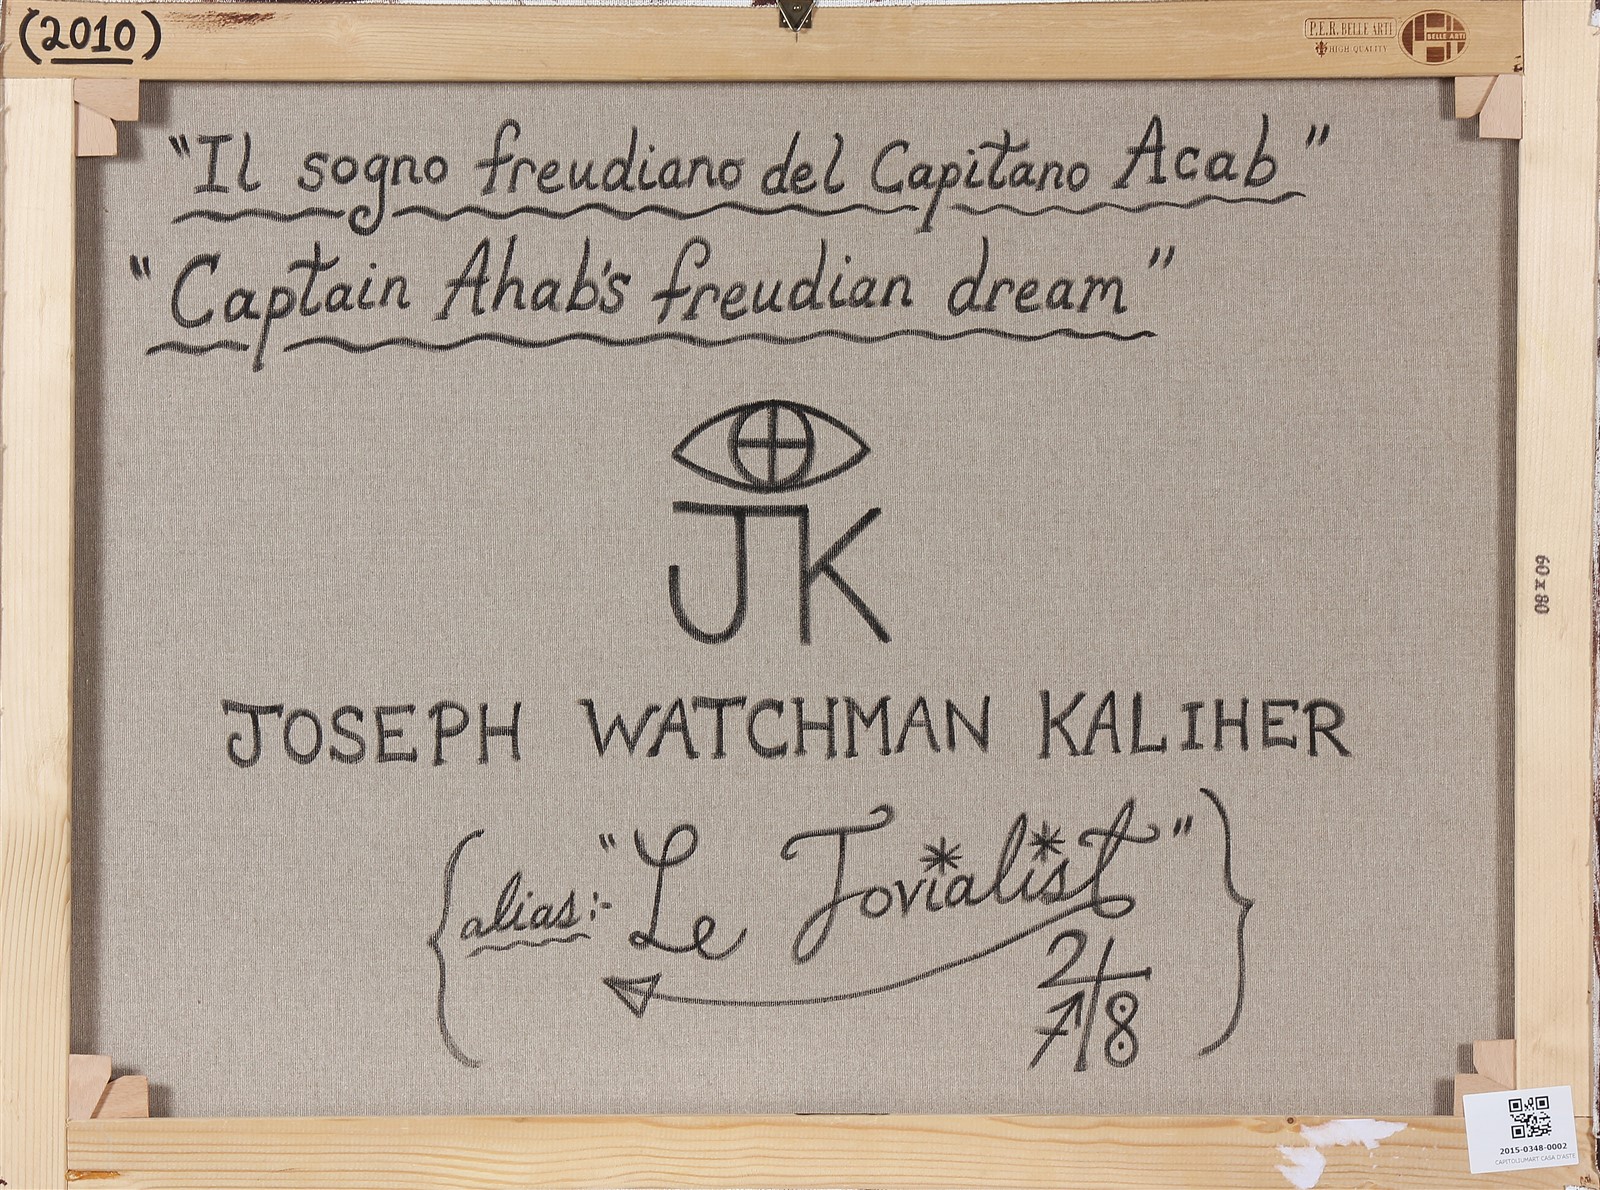 (2010)
P.E.R. BELLE ARTI
HIGH QUALITY
BELLE ARTI
"Il sogno freudiano del Capitano Acab"
"Captain Ahab's freudian dream"
JK
60 x 80
JOSEPH WATCHMAN KALIHER
{alias:- "Le Jovialist"}
2
7 8
2015-0348-0002
CAPITOLIUMART CASA D'ASTE